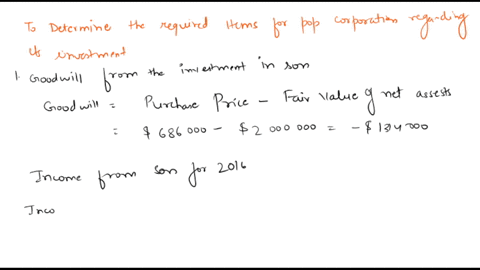 To Determine the required items for pop corporation regarding
its investment
1. Goodwill from the investment in son
Goodwill = Purchase Price - Fair value of net assests
= $ 686 000 - $ 2 000 000 = - $ 1314 000
Income from son for 2016
Inco